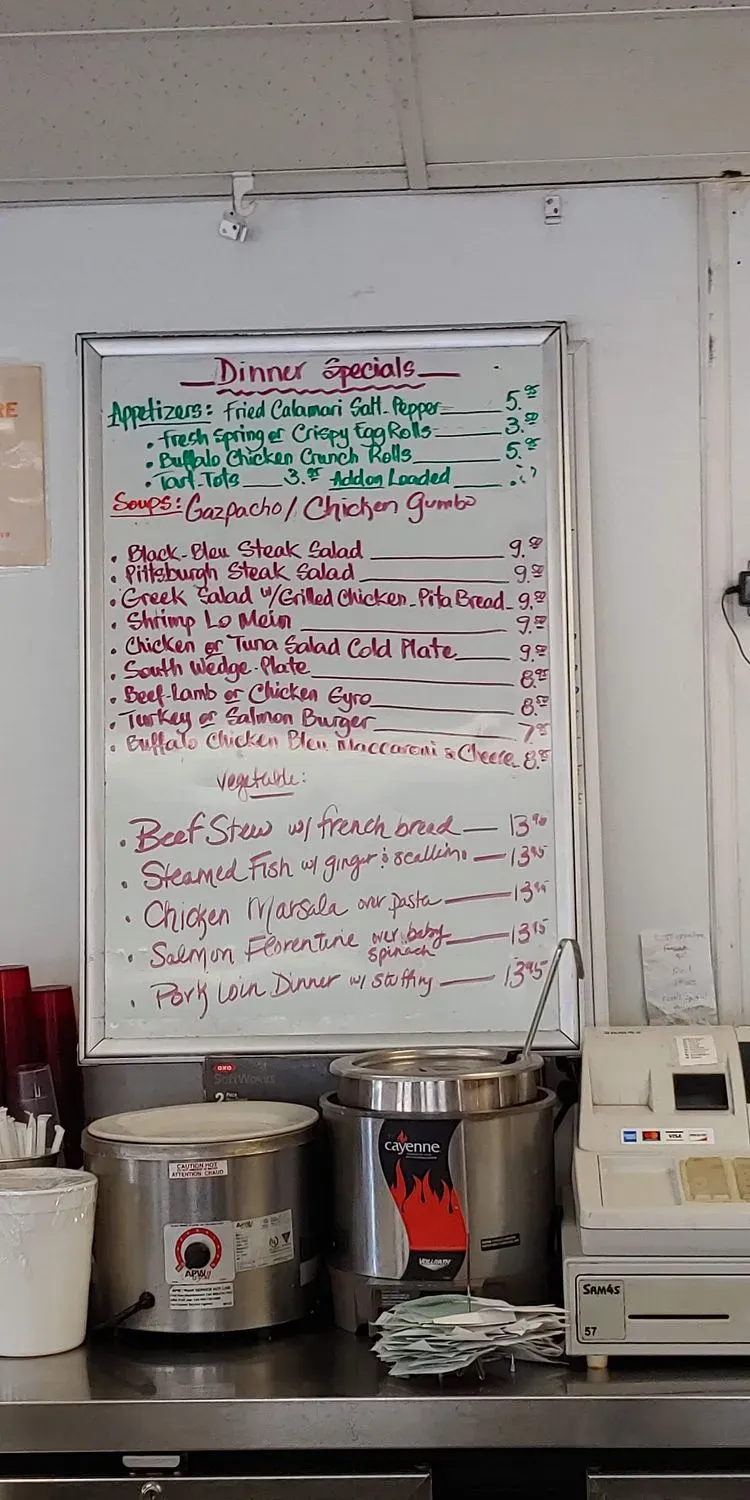 Dinner Specials
Appetizers: Fried Calamari Salt-Pepper 5.95
• Fresh Spring or Crispy Egg Rolls 3.50
• Buffalo Chicken Crunch Rolls 5.95
• Tart-Tots 3.95 Add on Loaded
Soups: Gazpacho / Chicken Gumbo
• Black-Bleu Steak Salad 9.50
• Pittsburgh Steak Salad 9.50
• Greek Salad w/Grilled Chicken-Pita Bread 9.50
• Shrimp Lo Mein 9.50
• Chicken or Tuna Salad Cold Plate 9.50
• South Wedge-Plate 8.95
• Beef-Lamb or Chicken Gyro 8.50
• Turkey or Salmon Burger 7.95
• Buffalo Chicken Bleu Maccaroni & Cheese 8.95
Vegetable:
• Beef Stew w/ french bread 13.95
• Steamed Fish w/ ginger & scallions 13.95
• Chicken Marsala over pasta 13.95
• Salmon Florentine over baby spinach 13.95
• Pork Loin Dinner w/ stuffing 13.95
OXO
SoftWorks
2 Piece
CAUTION HOT
ATTENTION CHAUD
APW
cayenne
VOLLRATH
VISA
SAM4S
57